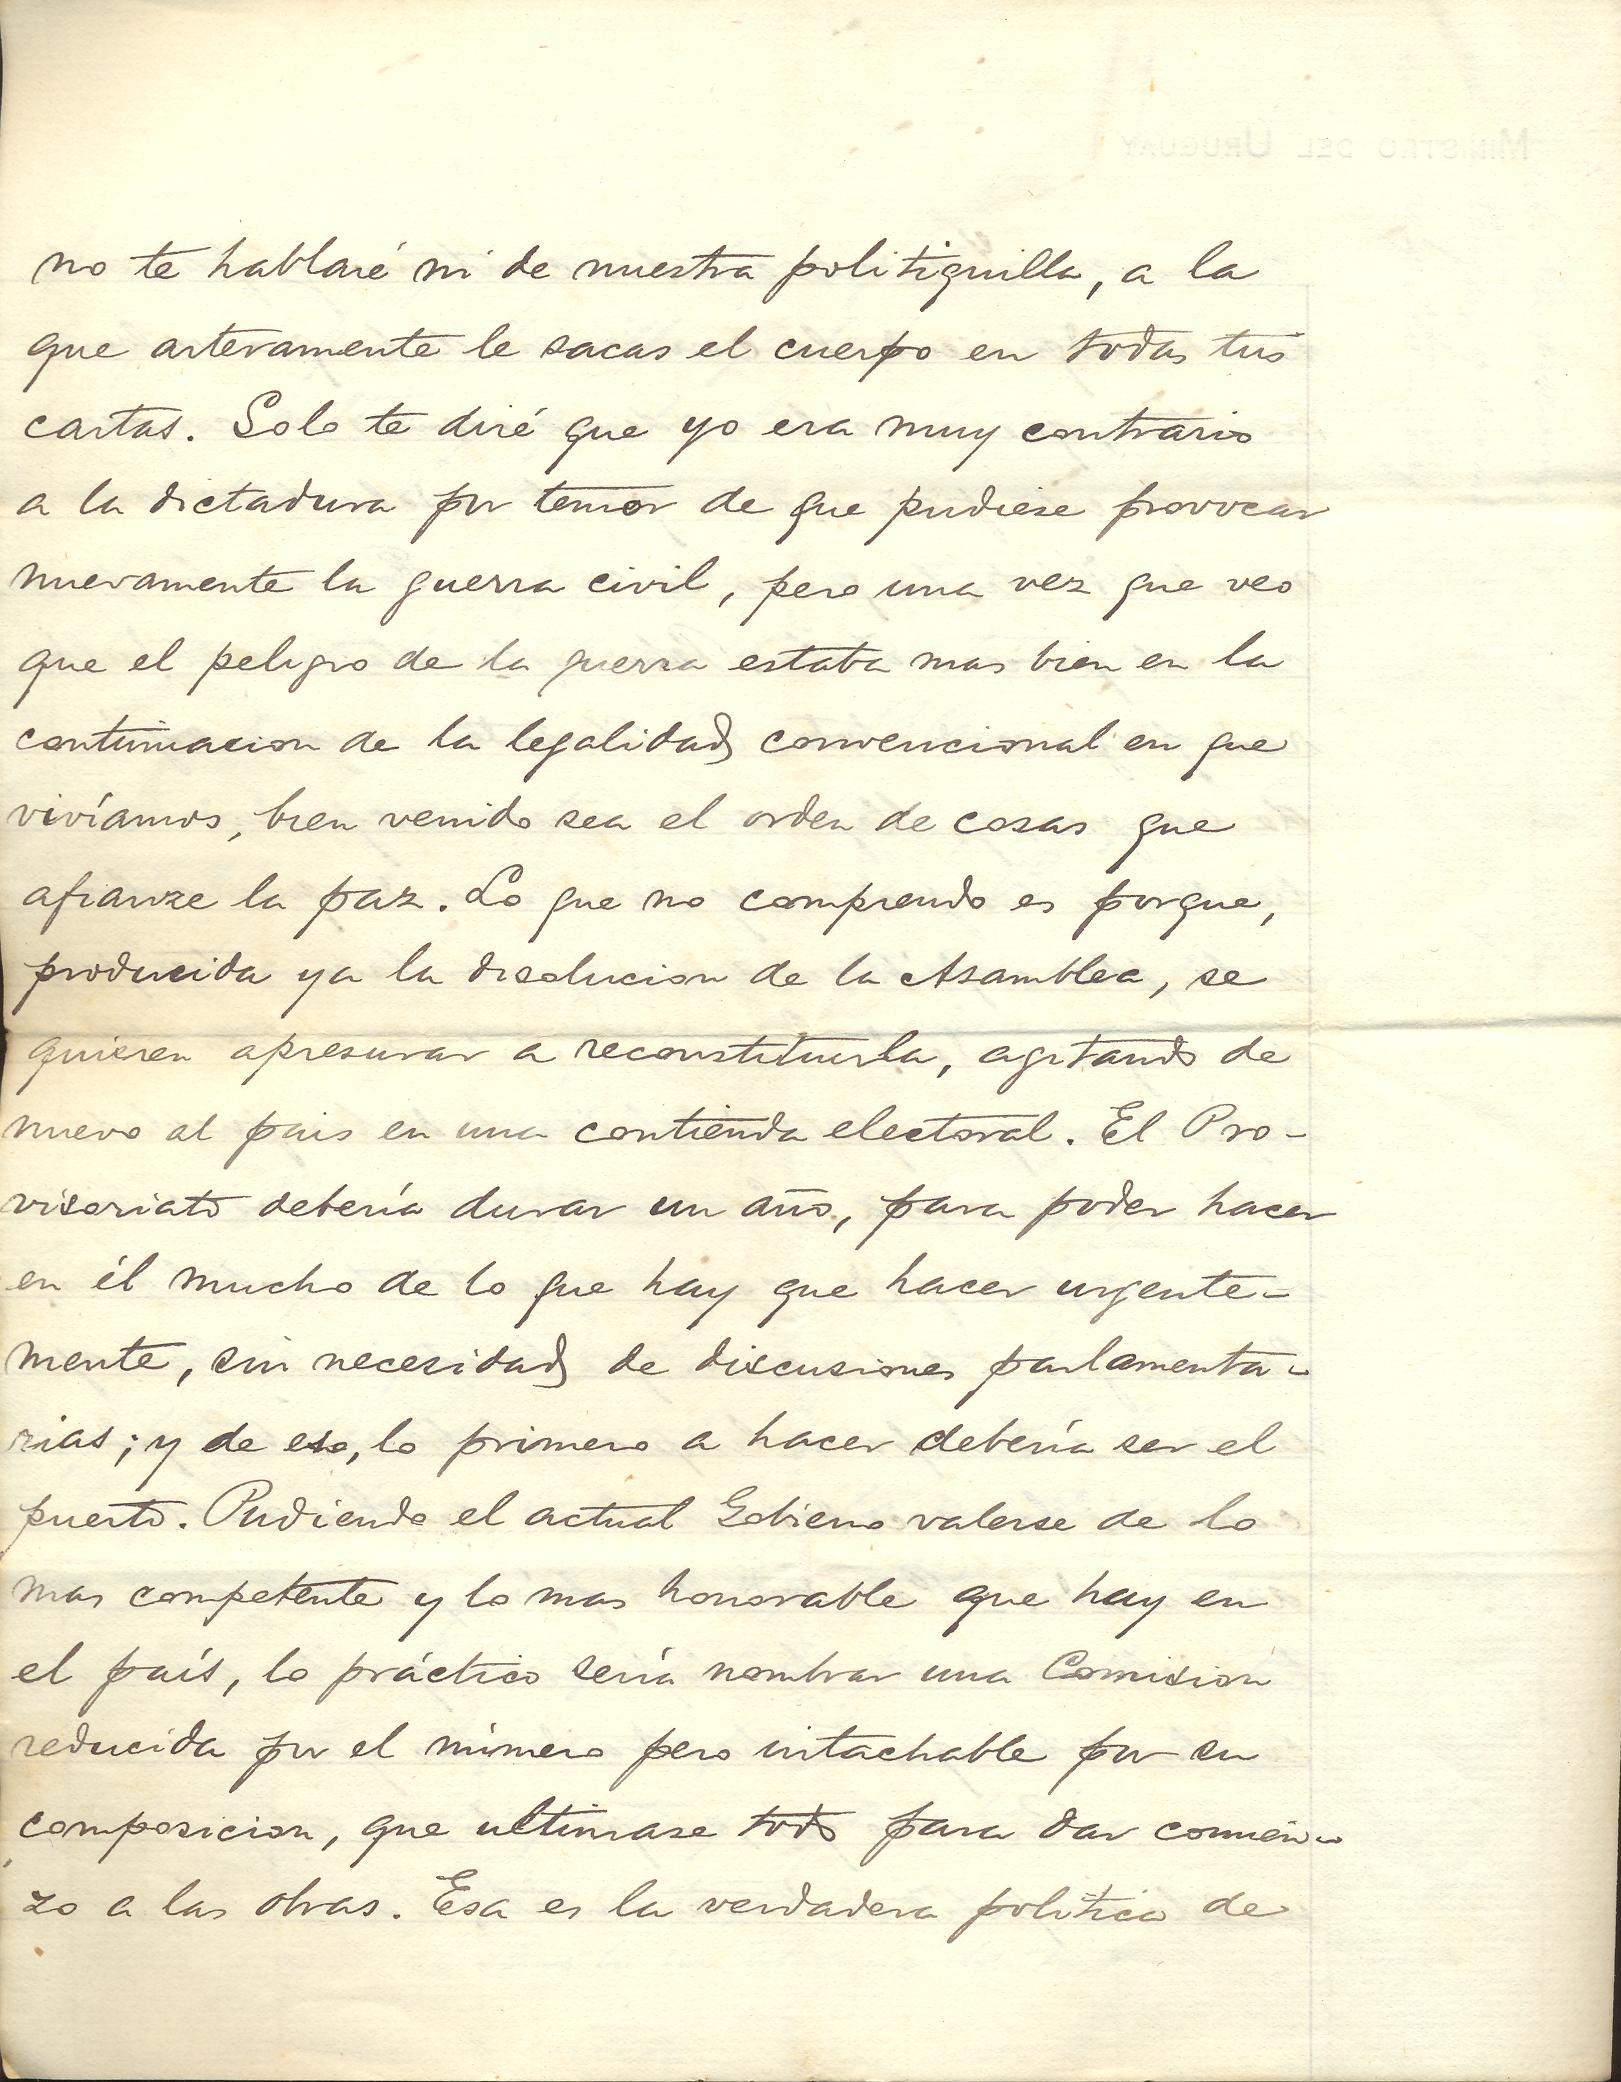 MINISTRO DEL URUGUAY
no te hablaré ni de nuestra politiquilla, a la
que arteramente le sacas el cuerpo en todas tus
cartas. Solo te diré que yo era muy contrario
a la dictadura por temor de que pudiese provocar
nuevamente la guerra civil, pero una vez que veo
que el peligro de la guerra estaba mas bien en la
continuacion de la legalidad convencional en que
vivíamos, bien venido sea el orden de cosas que
afianze la paz. Lo que no comprendo es porque,
producida ya la disolucion de la Asamblea, se
quieren apresurar a reconstituirla, agitando de
nuevo al pais en una contienda electoral. El Pro-
visoriato debería durar un año, para poder hacer
en él mucho de lo que hay que hacer urgente-
mente, sin necesidad de discusiones parlamenta-
rias; y de eso, lo primero a hacer debería ser el
puerto. Pudiendo el actual Gobierno valerse de lo
mas competente y lo mas honorable que hay en
el país, lo práctico sería nombrar una Comisión
reducida por el número pero intachable por su
composicion, que ultimase todo para dar comien-
zo a las obras. Esa es la verdadera política de